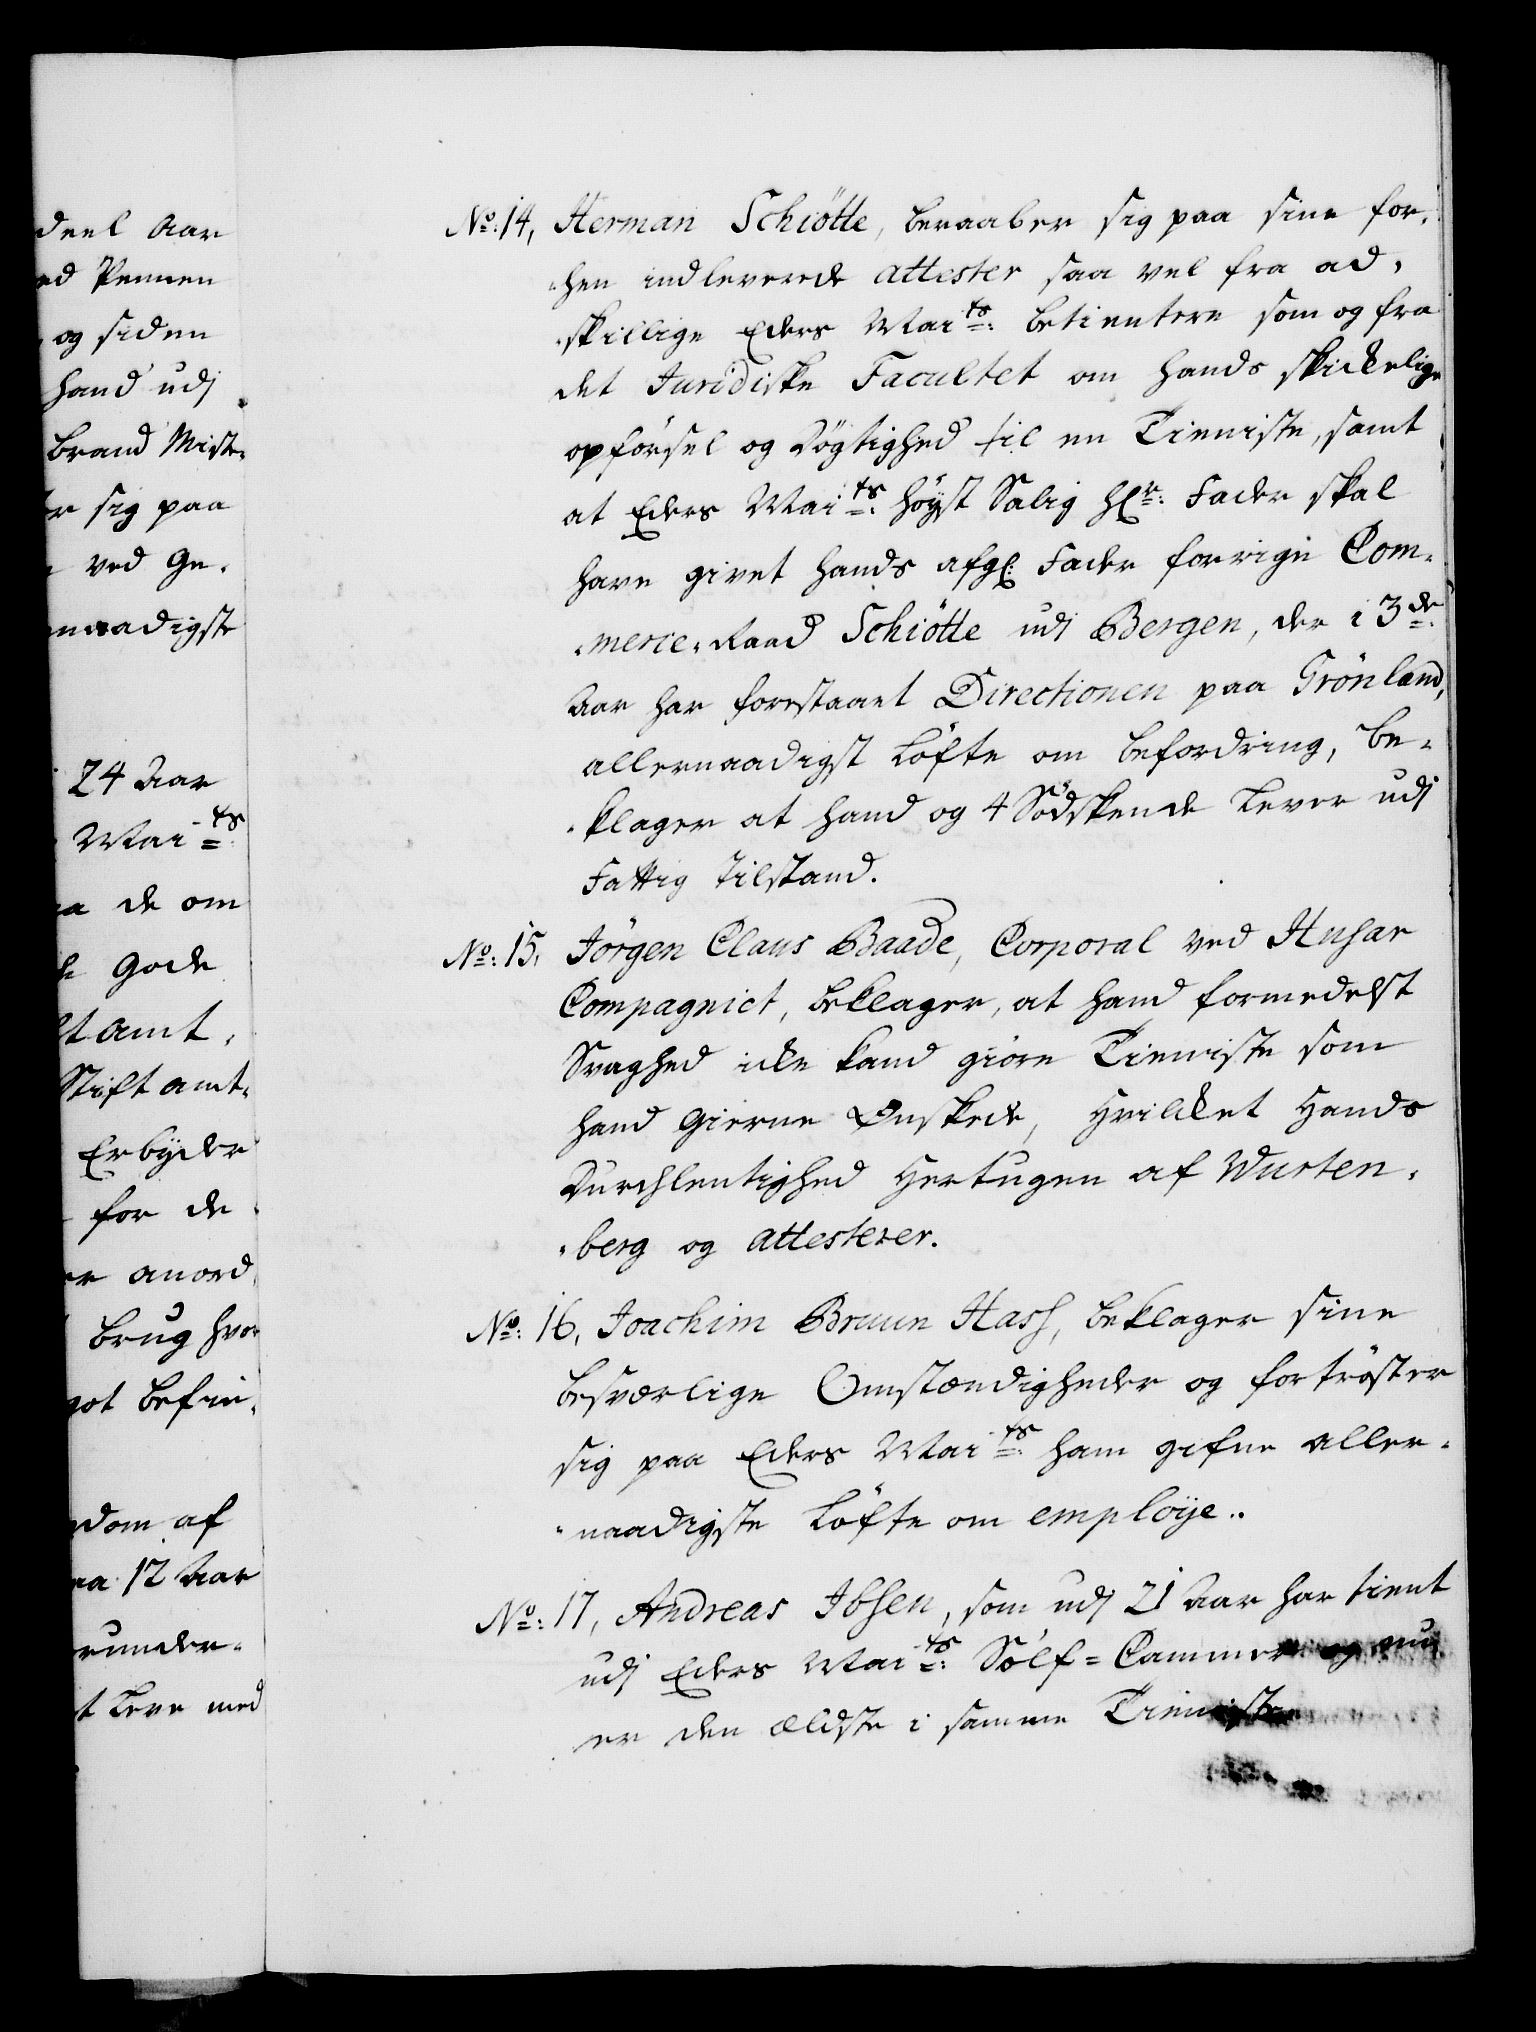 deel Aar
ed Pennen
og siden
hand udj
brand Mist-
r sig paa
ved Ge-
naadigste
24 Aar
Mai ts
a de om
Gode
lt Amt,
Stift amt-
Erbyder
for de
er anord
brug hvor
got befin-
dom af
aa 12 Aar
runder-
t Leve med
No: 14, Herman Schiötte, beraaber sig paa sine for-
-hen indleverede attester saa vel fra ad-
-skillige Eders Mai ts: betientere som og fra
det Juridiske Facultet om hands skickelige
opförsel og Dögtighed til en Tieniste, samt
at Eders Mai ts: Höyst Salig Hr: Fader skal
have givet hands afg: Fader forrige Com-
-merce-Raad Schiötte udj Bergen, der i 3de:
Aar har forestaaet Directionen paa Grönland,
allernaadigst Löfte om befordring, be-
-klager at hand og 4 Södskende Lever udj
Fattig Tilstand.
No: 15, Jörgen Claus Baade, Corporal ved Husar
Compagniet, beklager, at hand formedelst
Svaghed icke kand giöre Tieniste som
hand gierne Ønskede, Hvilcket Hands
Durchleutighed Hertugen af Wurten-
-berg og attesterer.
No: 16, Joachim Bruun Hass, beklager sine
besværlige Omstændigheder og fortröster
sig paa Eders Mai ts: ham gifne aller-
-naadigste Löfte om employe..
No: 17, Andreas Ibsen, som udj 21 Aar har tient
udj Eders Mai ts: Sölf=Cammer og nu
er den ældste i samme Tieniste